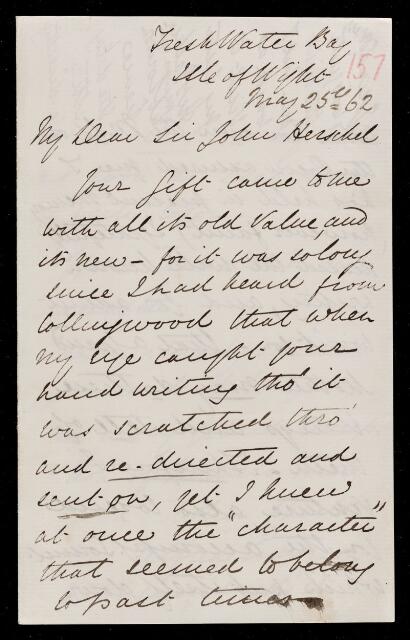 Fresh Water Bay
Isle of Wight
157
May 25th 62
My Dear Sir John Herschel
Your Gift came to me
with all its old value, and
its new – for it was so long
since I had heard from
Collingwood that when
my eye caught your
hand writing tho' it
was scratched thro'
and re-directed and
sent on, yet I knew
at once the "character"
that seemed to belong
to past times